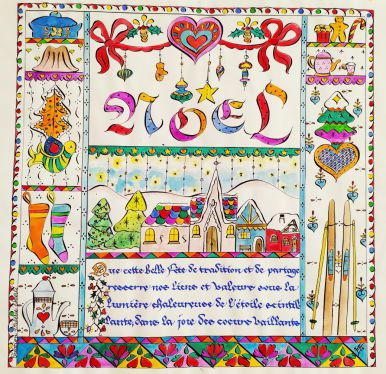 NOEL
Que cette belle fête de tradition et de partage
resserre nos liens et valeurs sous la
lumière chaleureuse de l'étoile scintil
lante, dans la joie des coeurs vaillants